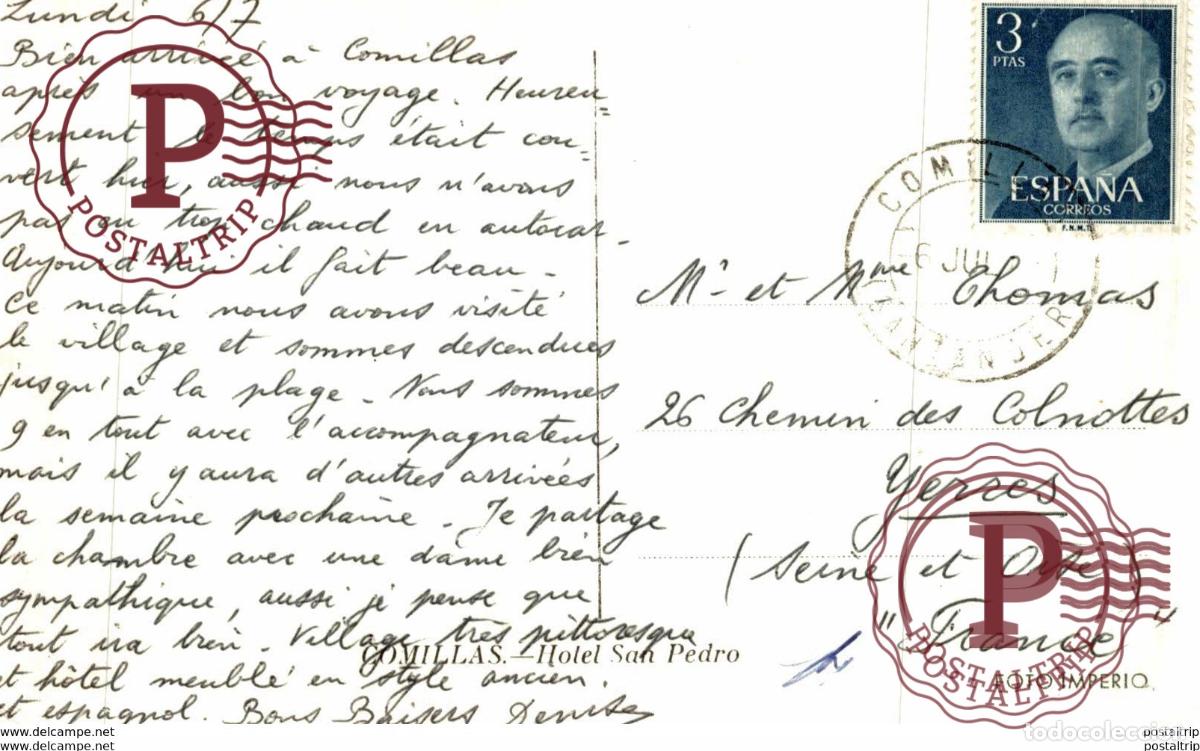 Lundi 6/7
Bien arrivée à Comillas
après un bon voyage. Heureu
sement le temps était cou-
vert hier, aussi nous n'avons
pas eu trop chaud en autocar.
Aujourd'hui il fait beau -
Ce matin nous avons visité
le village et sommes descendues
jusqu'à la plage - Nous sommes
9 en tout avec l'accompagnateur,
mais il y aura d'autres arrivées
la semaine prochaine - Je partage
la chambre avec une dame bien
sympathique, aussi je pense que
tout ira bien. Village très pittoresque
et hôtel meublé en style ancien.
et espagnol. Bons Baisers Denise
COMILLAS.—Hotel San Pedro
3
PTAS
ESPAÑA
CORREOS
F.N.M.T.
COMILLAS
6 JUL
(SANTANDER)
Mr et Mme Thomas
26 Chemin des Colnottes
Yerres
(Seine et Oise)
"France"
FOTO IMPERIO
P
POSTALTRIP
P
POSTALTRIP
todocoleccion
www.delcampe.net
postaltrip
www.delcampe.net
postaltrip